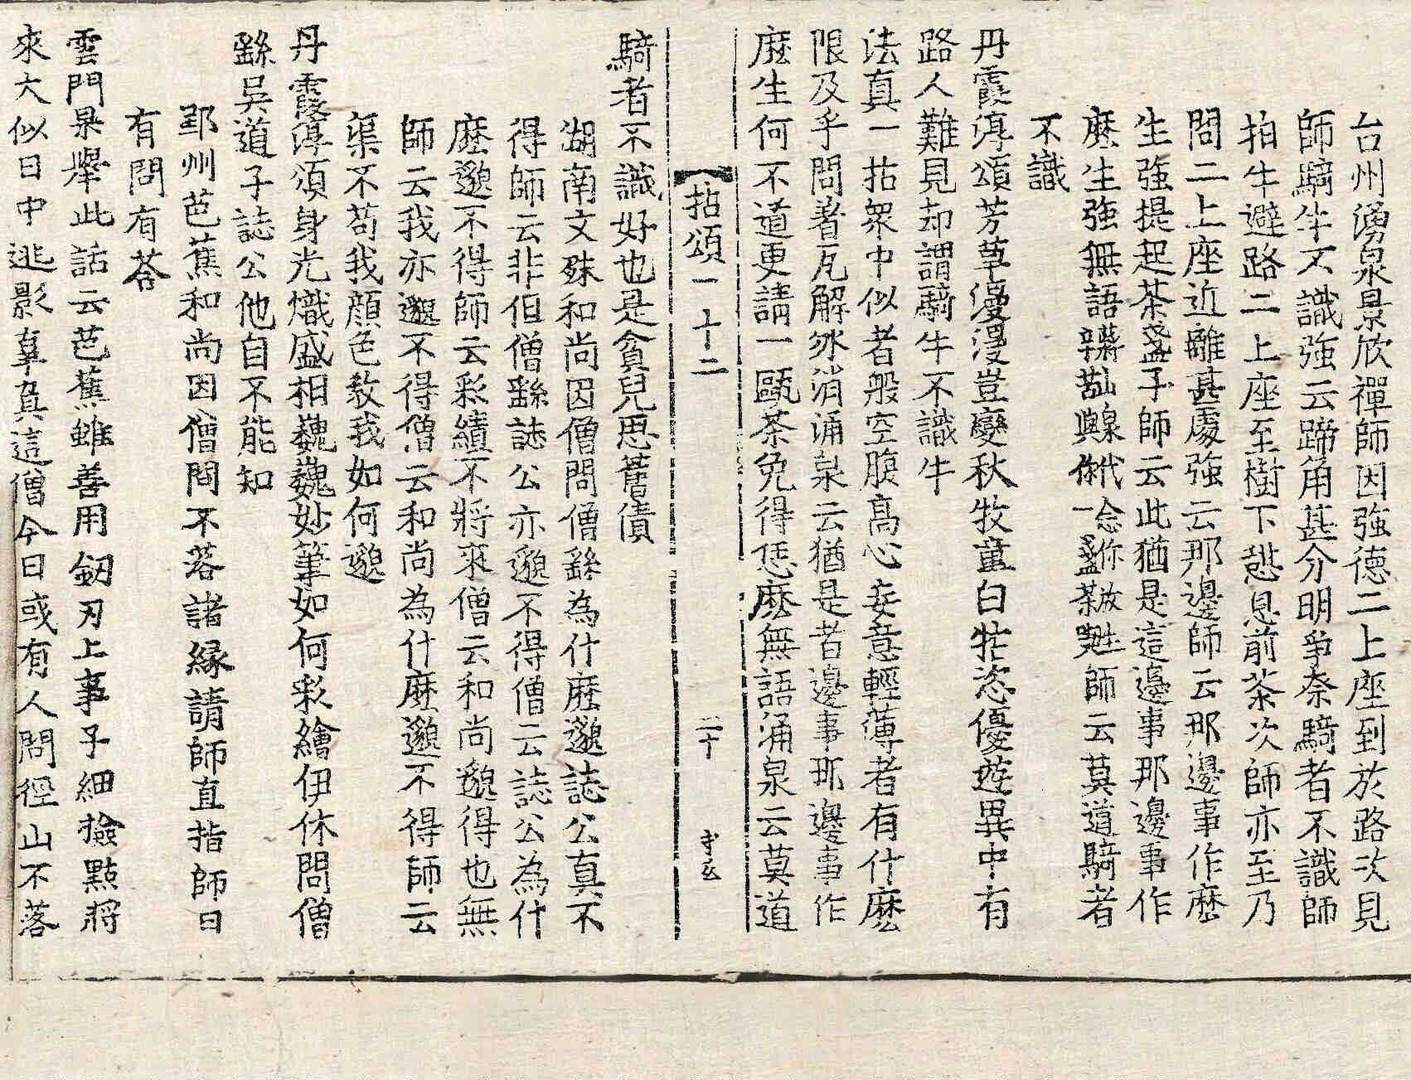 台州湧泉景欣禪師因強德二上座到於路次見
師騎牛不識強云蹄角甚分明爭奈騎者不識師
拍牛避路二上座至樹下憇息前茶次師亦至乃
問二上座近離甚處強云那邊師云那邊事作麽
生強提起茶盞子師云此猶是這邊事那邊事作
麽生強無語
代念你放
一盞茶
師云莫道騎者
不識
丹霞淳頌芳草優漫豈變秋牧童白牯恣優遊異中有
路人難見却謂騎牛不識牛
法真一拈衆中似者般空腹高心妄意輕薄者有什麽
限及乎問著瓦解氷消涌泉云猶是者邊事那邊事作
麽生何不道更請一甌茶免得恁麽無語涌泉云莫道
拈頌一 十二 二十
騎者不識好也是貧兒思舊債
湖南文殊和尚因僧問僧繇為什麽邈誌公真不
得師云非但僧繇誌公亦邈不得僧云誌公為什
麽邈不得師云彩繢不將來僧云和尚邈得也無
師云我亦邈不得僧云和尚為什麽邈不得師云
渠不苟我顔色教我如何邈
丹霞淳頌身光熾盛相巍巍妙筆如何彩繪伊休問僧
繇吳道子誌公他自不能知
郢州芭蕉和尚因僧問不落諸緣請師直指師曰
有問有荅
雲門杲擧此話云芭蕉雖善用劒刃上事子細撿點將
來大似日中逃影辜負這僧今日或有人問徑山不落